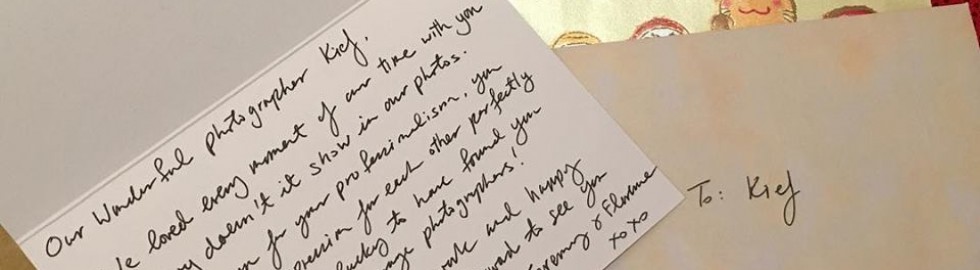 Our Wonderful photographer Kief,
loved every moment of our time with you
doesn't it show in our photos.
for your professionalism, you
for each other perfectly
lucky to have found you
photographers!
and happy
to see you
& Florence
xoxo
To: Kief